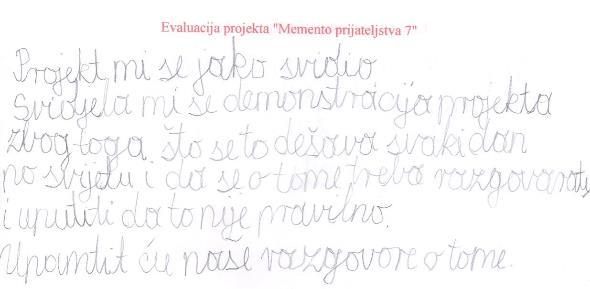 Evaluacija projekta "Memento prijateljstva 7"
Projekt mi se jako svidio
Svidjela mi se demonstracija projekta
zbog toga što se to dešava svaki dan
po svijetu i da se o tome treba razgovarati
i uputiti da to nije pravilno.
Upamtit ću naše razgovore o tome.